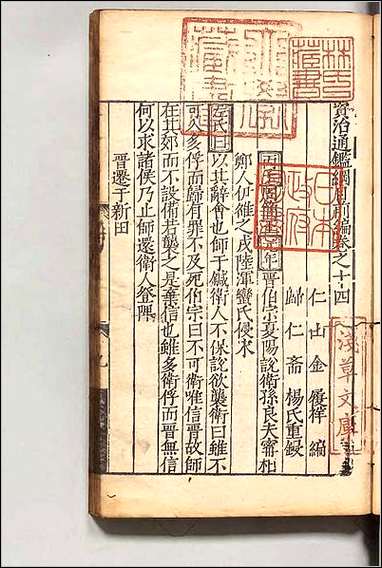 林氏藏書
資治通鑑綱目前編卷之十四
日本政府
仁山金履祥編
淺草文庫
歸仁斎楊氏重鋟
丙子周簡王元年晉伯宗夏陽說衛孫良夫甯相
鄭人伊雒之戎陸渾蠻氏侵宋
左氏曰以其辭會也師于鍼衛人不保說欲襲衛曰雖不
可入多俘而歸有罪不及死伯宗曰不可衛唯信晉故師
在其郊而不設備若襲之是棄信也雖多衛俘而晉無信
何以求諸侯乃止師還衛人登陴
晉遷于新田